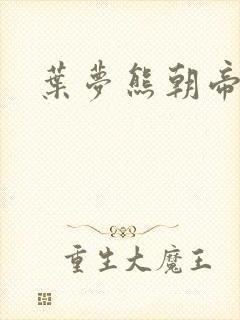 葉夢熊朝帝
重生大魔王